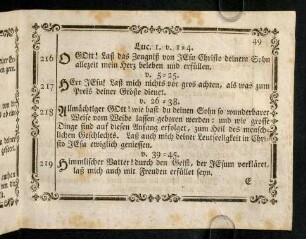 49
Luc. 1. v. 1=4.
216 O GOtt! Laß das Zeugniß von JEsu Christo deinem Sohn
allezeit mein Herz beleben und erfüllen.
v. 5=25.
217 HErr JEsu! Laß mich nichts vor gros achten, als was zum
Preis deiner Größe dienet.
v. 26=38.
218 Allmächtiger GOtt! wie hast du deinen Sohn so wunderbarer
Weise vom Weibe lassen geboren werden; und wie grosse
Dinge sind auf diesen Anfang erfolget, zum Heil des mensch-
lichen Geschlechts. Laß auch mich deiner Leutseeligkeit in Christo
JEsu ewiglich geniessen.
v. 39=45.
219 Himmlischer Vatter! durch den Geist, der JEsum verkläret,
laß mich auch mit Freuden erfüllet seyn.
E